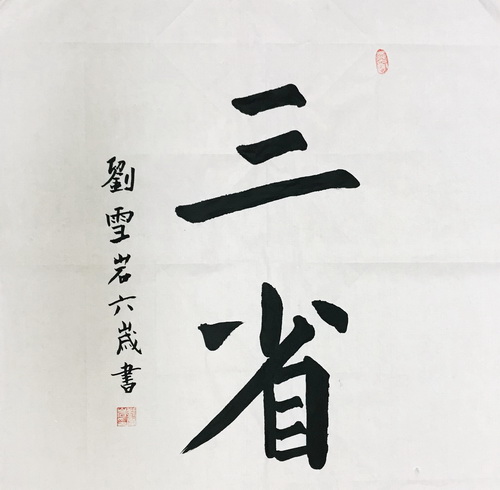 三省
劉雪岩六歲書